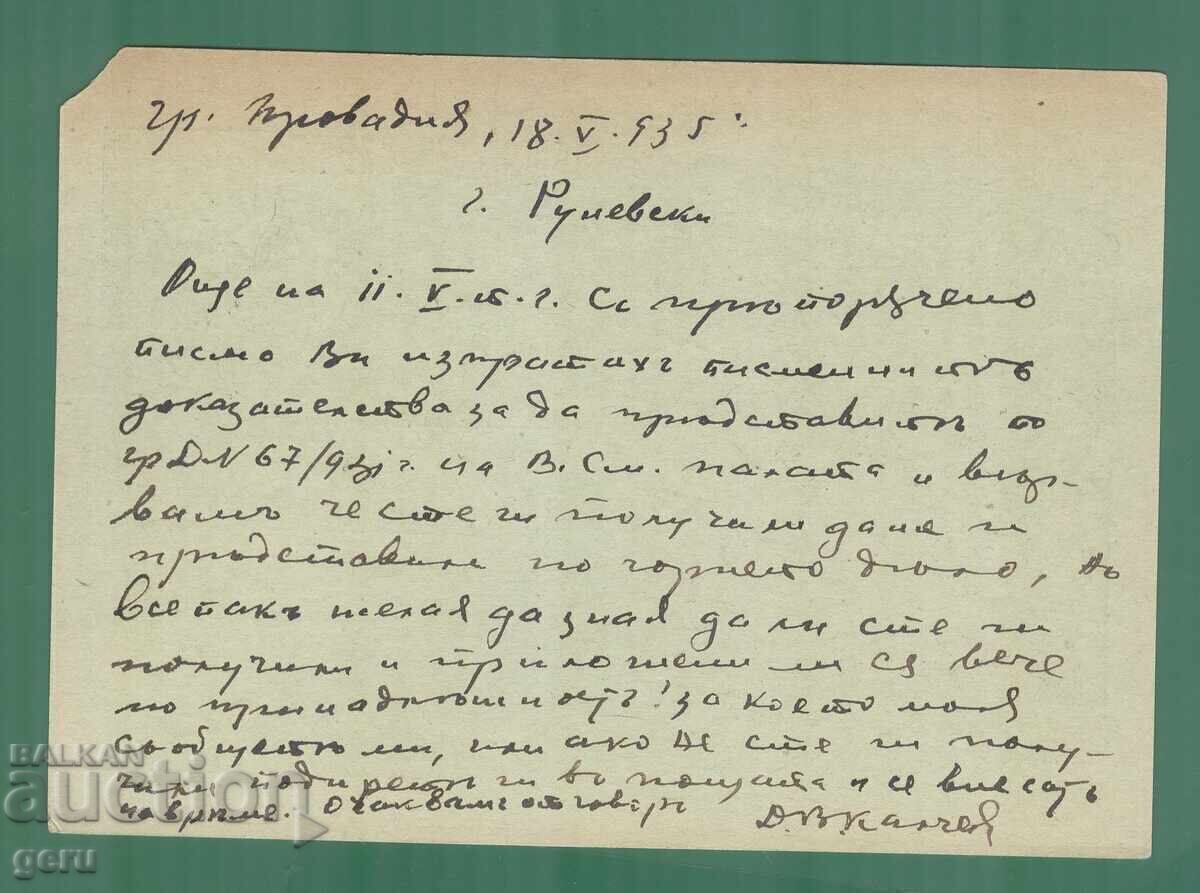 гр. Провадия, 18.V.935
г. Руневски
на 11.V.т.г. Съ прѣпорѫчено
писмо Ви изпратихъ писменитѣ
доказателства за да прѣдставитѣ по
гр Д N 67/93 г. на В. См. палата и вѣр-
вамъ че сте ги получили да ги
прѣдставили по горнето дѣло, но
все пакъ желая да зная дали сте ги
получили и приложени ли сѫ вече
по принадлѣжность! за което моля
съобщетѣ ми, или ако не сте ги полу-
чили подиретѣ ги въ пощата и се внесатъ
на врѣме. Очаквамъ отговоръ Д. В. Калчев
BALKAN
auction
geru